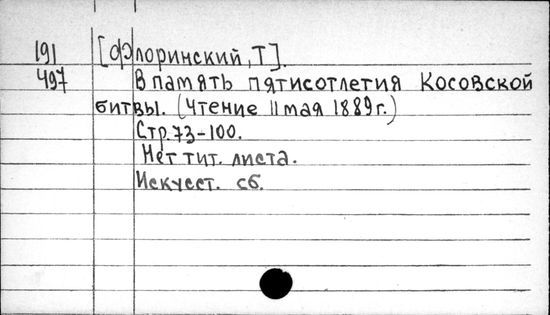 191 [Флоринский, Т].
497 В память пятисотлетия Косовской
битвы. (Чтение 11 мая 1889 г.)
Стр. 73-100.
Нет тит. листа.
Искусст. сб.